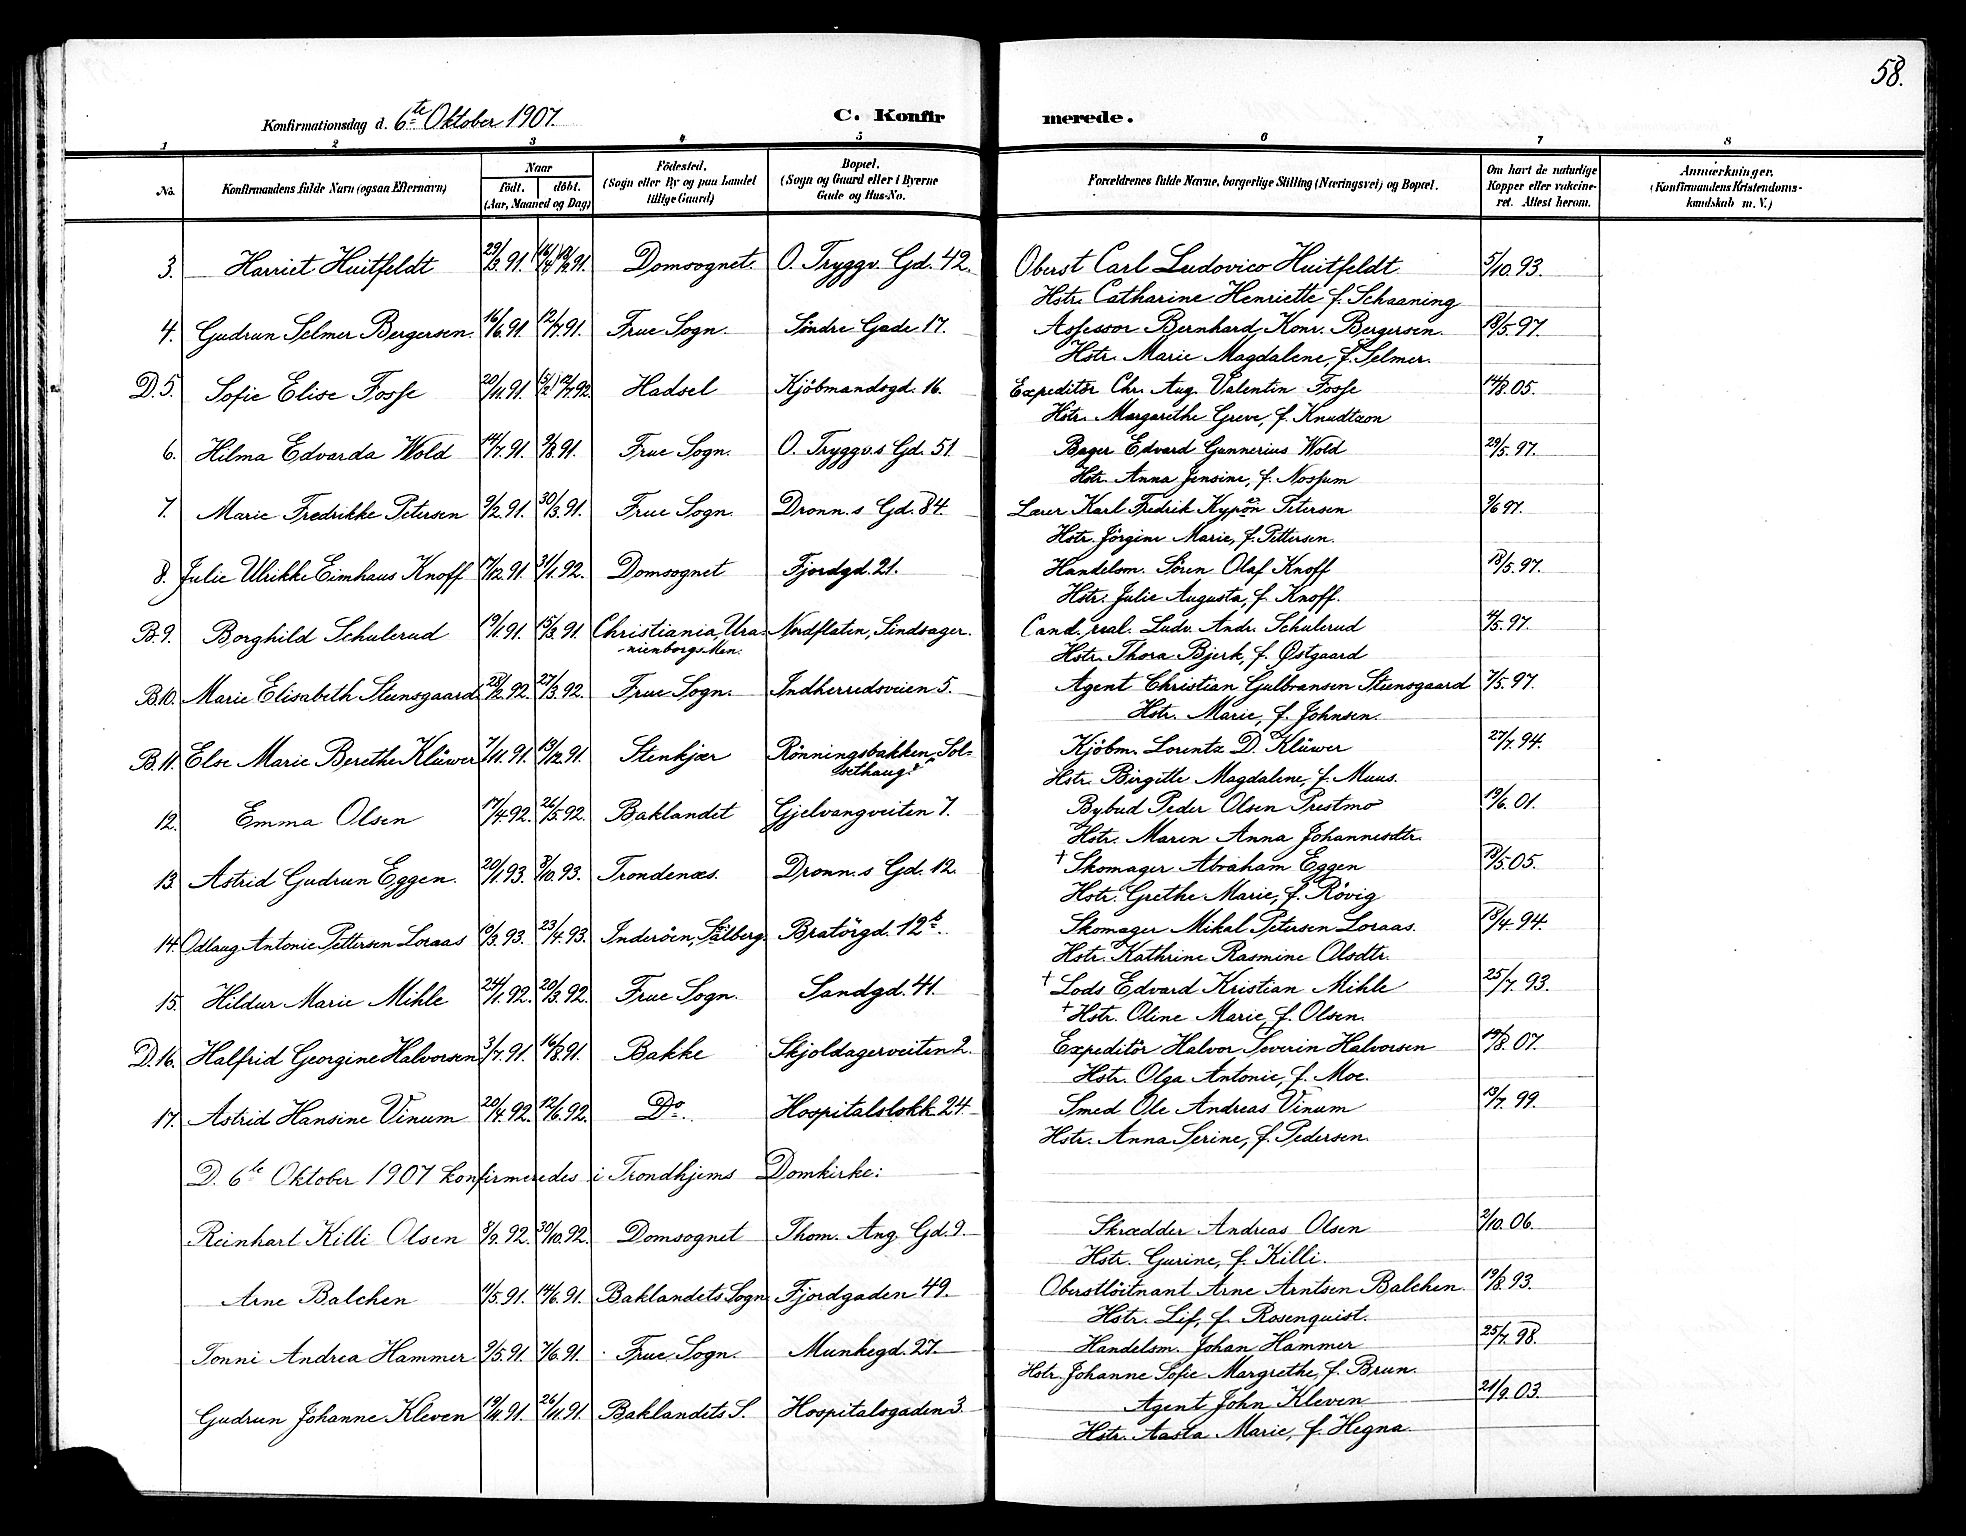 58.
Konfirmationsdag d. 6te Oktober 1907.
C. Konfirmerede.
1 2 3 4 5 6 7 8
No. Konfirmandens fulde Navn (ogsaa Efternavn) Naar født. døbt. (Aar, Maaned og Dag) Födested. (Sogn eller By og paa Landet tillige Gaard) Bopæl. (Sogn og Gaard eller i Byerne Gade og Hus-No. Forældrenes fulde Navne, borgerlige Stilling (Næringsvei) og Bopæl. Om havt de naturlige Kopper eller vakcineret. Attest herom. Anmærkninger. (Konfirmandens Kristendomskundskab m. V.)
3. Harriet Huitfeldt 29/3 91. Domsognet. O. Tryggv. Gd. 42. Oberst Carl Ludovico Huitfeldt 5/10 93.
Hstr. Catharine Henriette f. Schaaning
4. Gudrun Selmer Bergersen. 16/6 91. 12/7 91. Frue Sogn. Söndre Gade 17. Assessor Bernhard Konr. Bergersen. 18/5 97.
Hstr. Marie Magdalene, f. Selmer.
D. 5. Sofie Elise Fosse 20/11 91. Hadsel Kjöbmandsgd. 16. Expeditör Chr. Aug. Valentin Fosse 14/8 05.
Hstr. Margarethe Greve, f. Knudtzon
6. Hilma Edvarda Wold 14/7 91. 9/8 91. Frue Sogn. O. Tryggv.s Gd. 51 Bager Edvard Gunnerius Wold 29/5 97.
Hstr. Anna Jensine, f. Nossum
7. Marie Fredrikke Petersen 9/2 91. 30/3 91. Frue Sogn. Dronn.s Gd. 84. Lærer Karl Fredrik Petersen 9/6 97.
Hstr. Jörgine Marie, f. Pettersen.
8. Julie Ulrikke Eimhaus Knoff 7/12 91. 31/1 92. Domsognet Fjordgd. 21. Handelsm. Sören Olaf Knoff 18/5 97.
Hstr. Julie Augusta, f. Knoff.
B. 9. Borghild Schulerud 19/1 91. 15/3 91. Christiania, Uranienborgs Men. Nordflaten, Sindsager. Cand. real. Ludv. Andr. Schulerud 4/5 97.
Hstr. Thora Bjerk, f. Østgaard
B. 10. Marie Elisabeth Steensgaard 28/2 92. 27/3 92. Frue Sogn. Indherredsveien 5. Agent Christian Gulbransen Steensgaard 7/5 97.
Hstr. Marie, f. Johnsen.
B. 11. Else Marie Berethe Klüwer 7/11 91. 13/12 91. Stenkjær Rönningsbakken, Solsethaug Kjöbm. Lorentz D. Klüwer 27/7 94.
Hstr. Birgitte Magdalene, f. Muus.
12. Emma Olsen 17/4 92. 26/5 92. Baklandet Gjelvangveiten 7. Bybud Peder Olsen Prestmo 19/6 01.
Hstr. Maren Anna Johannesdtr.
13. Astrid Gudrun Eggen. 20/1 93. 3/10 93. Trondenæs. Dronn.s Gd. 12. † Skomager Abraham Eggen 18/5 05.
Hstr. Grethe Marie, f. Rövig
14. Odlaug Antonie Pettersen Loraas 10/3 93. 23/4 93. Inderöen, Salberg. Bratörgd. 12b. Skomager Mikal Petersen Loraas. 18/4 94.
Hstr. Kathrine Rasmine Olsdtr.
15. Hildur Marie Mihle 24/1 92. 20/3 92. Frue Sogn. Sandgd. 41. † Lods Edvard Kristian Mihle 25/7 93.
† Hstr. Oline Marie, f. Olsen.
D. 16. Halfrid Georgine Halvorsen 3/7 91. 16/8 91. Bakke Skjoldagerveiten 2. Expeditör Halvor Severin Halvorsen 19/8 07.
Hstr. Olga Antonie, f. Moe.
17. Astrid Hansine Vinum 20/4 92. 12/6 92. Do. Hospitalslökk. 24 Smed Ole Andreas Vinum 13/7 99.
Hstr. Anna Serine, f. Pedersen.
D. 6te Oktober 1907 konfirmeredes i Trondhjems Domkirke:
Reinhart Killi Olsen 8/9 92. 30/10 92. Domsognet Thom. Ang. Gd. 9. Skrædder Andreas Olsen 2/10 06.
Hstr. Gurine, f. Killi.
Arne Balchen 11/5 91. 14/6 91. Baklandets Sogn Fjordgaden 49. Oberstlöitnant Arne Arntsen Balchen. 19/8 93.
Hstr. Lif, f. Rosenquist.
Tonni Andrea Hammer 9/5 91. 7/6 91. Frue Sogn. Munkegd. 27. Handelsm. Johan Hammer 25/7 98.
Hstr. Johanne Sofie Margrethe, f. Brun.
Gudrun Johanne Kleven 26/11 91. Baklandets S. Hospitalsgaden 3. Agent John Kleven 21/9 03.
Hstr. Aasta Marie, f. Hegna.